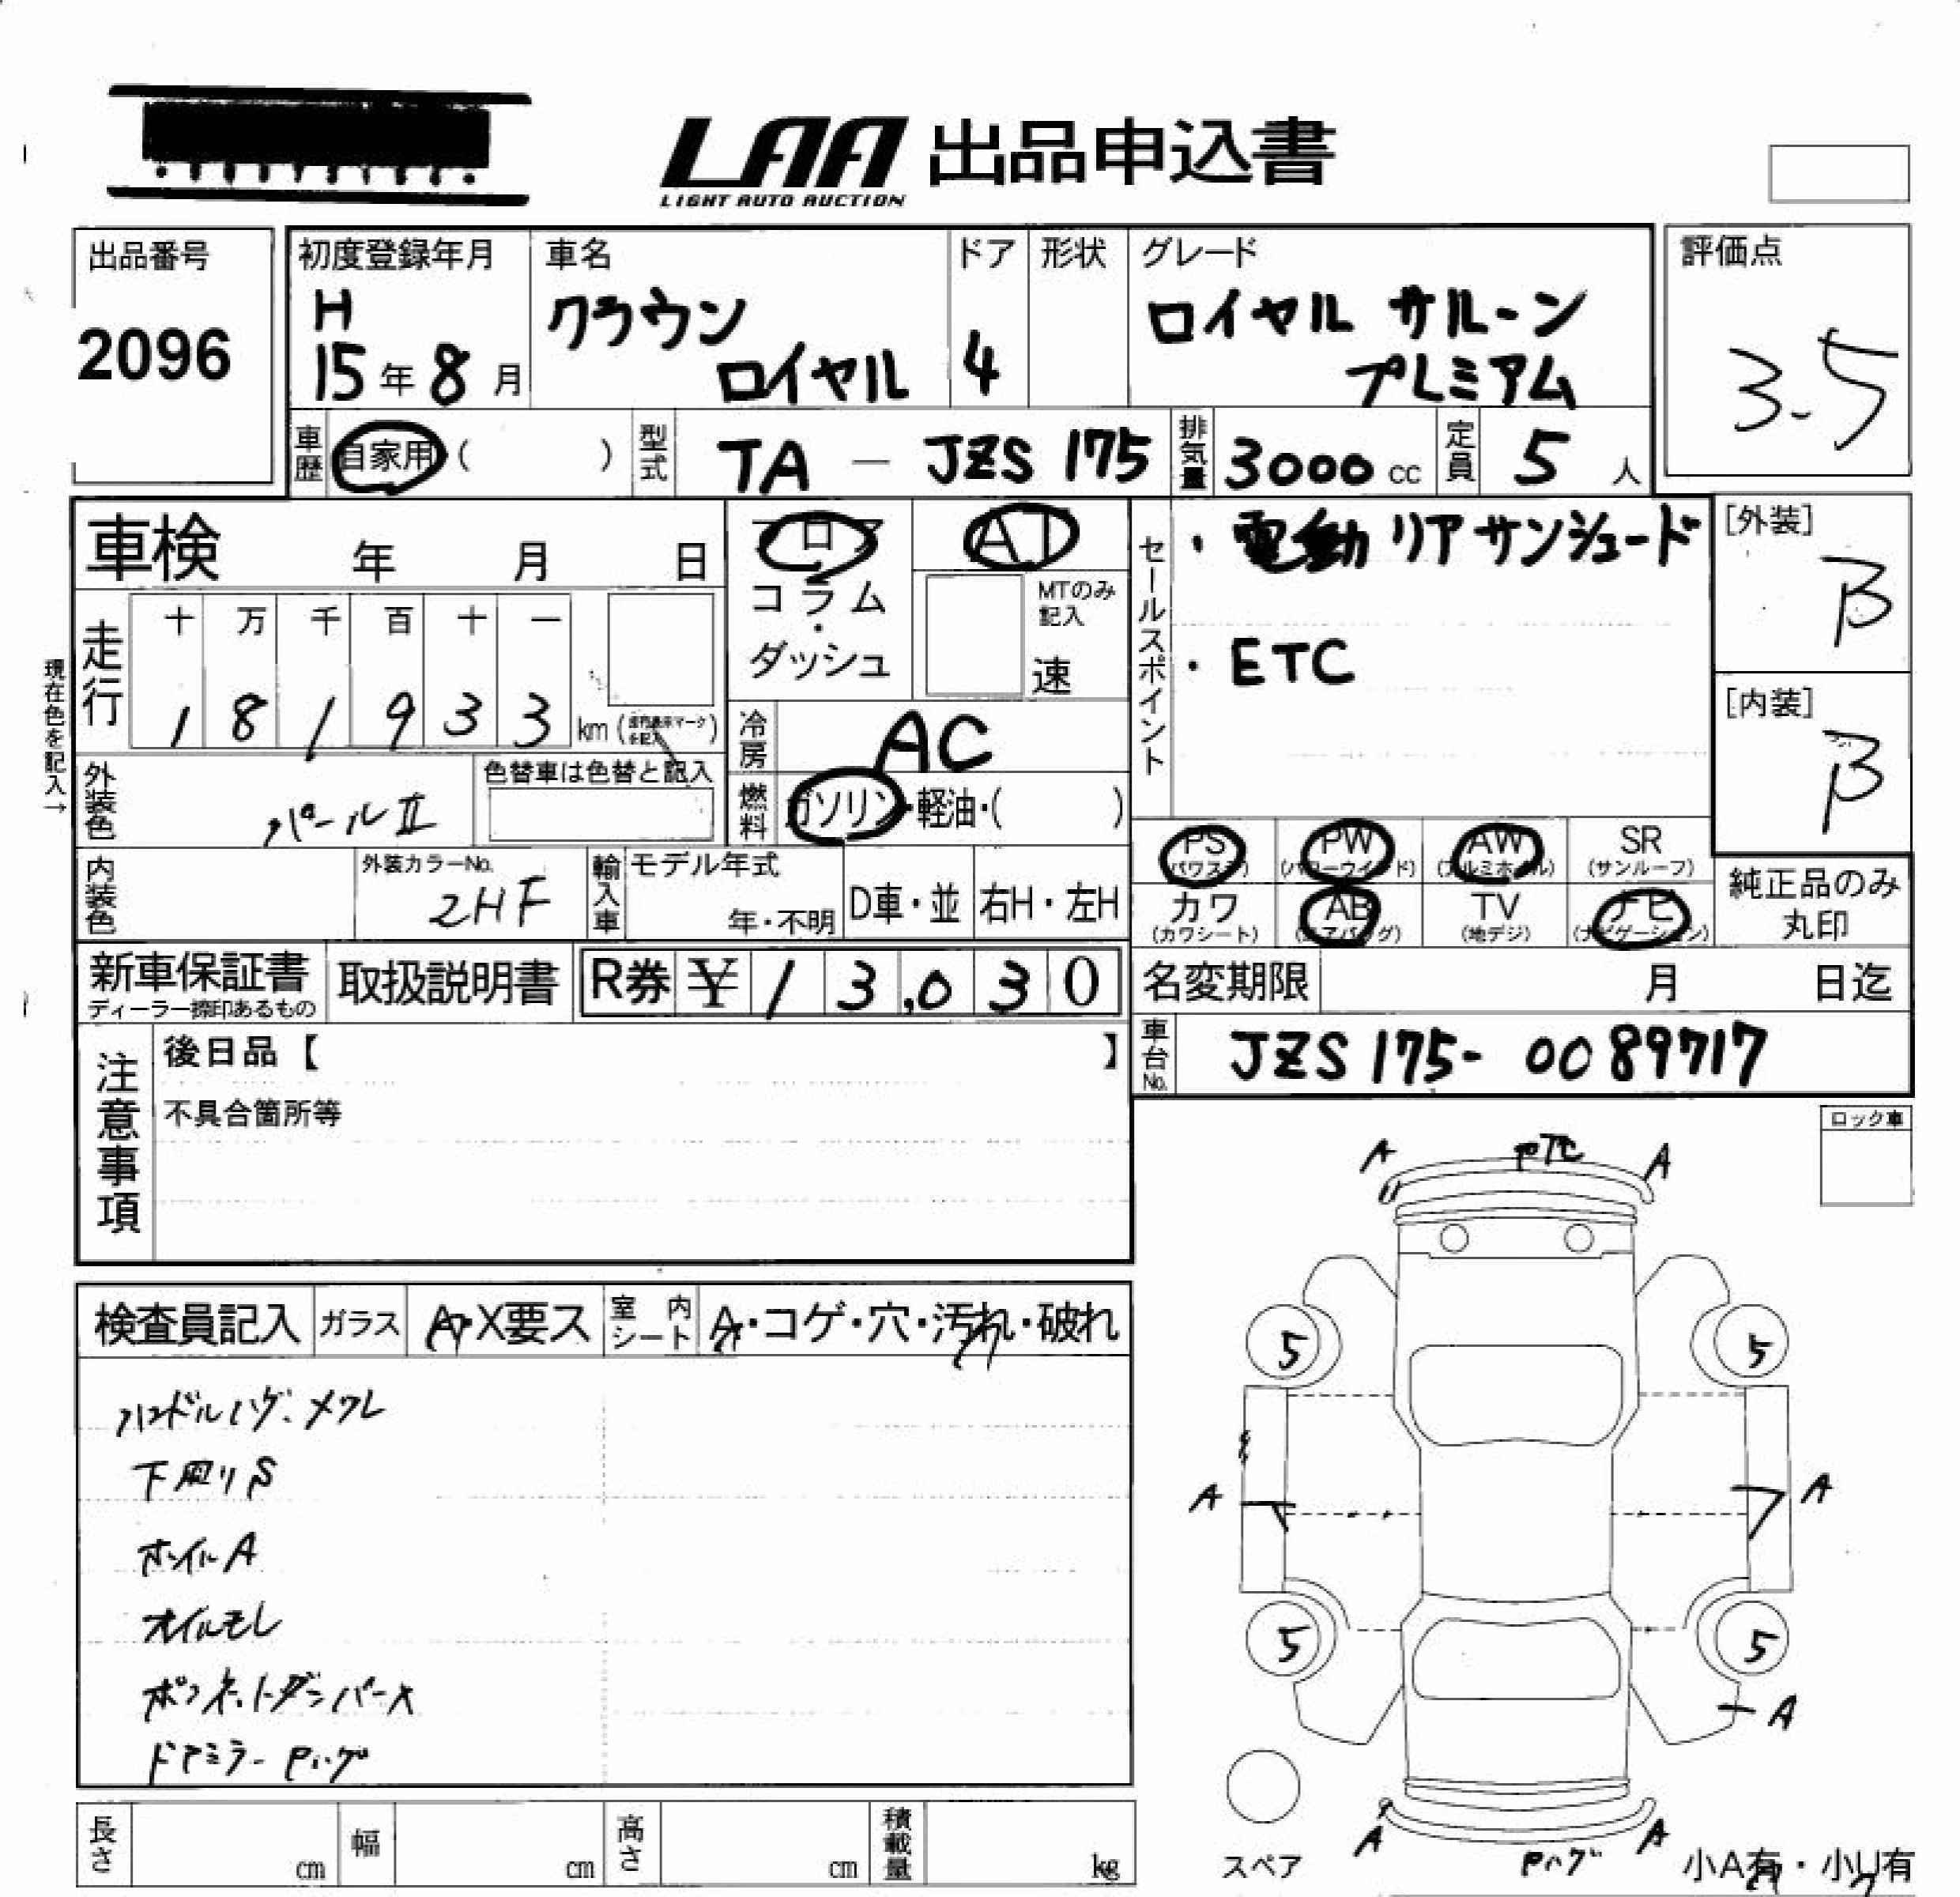 LAA 出品申込書
LIGHT AUTO AUCTION
出品番号
2096
初度登録年月
H
15年8月
車名
クラウン
ロイヤル
ドア
4
形状
グレード
ロイヤル サルーン
プレミアム
評価点
3.5
車歴 自家用 ( )
型式 TA - JZS 175
排気量 3000 cc
定員 5 人
車検 年 月 日
走行
十 万 千 百 十 一
1 8 1 9 3 3 km
現在色を記入→
フロア
コラム
・
ダッシュ
AT
MTのみ
記入
速
冷房 AC
燃料 ガソリン・軽油・( )
セールスポイント
・電動リアサンシェード
・ETC
[外装]
B
[内装]
B
外装色 パールⅡ
色替車は色替と記入
内装色
外装カラーNo.
2HF
輸入車
モデル年式
年・不明
D車・並
右H・左H
PS
(パワステ)
PW
(パワーウインド)
AW
(アルミホイル)
SR
(サンルーフ)
カワ
(カワシート)
AB
(エアバッグ)
TV
(地デジ)
ナビ
(ナビゲーション)
純正品のみ
丸印
新車保証書
ディーラー捺印あるもの
取扱説明書
R券 ¥ 13,030
名変期限 月 日迄
車台No. JZS 175- 0089717
注意事項
後日品【 】
不具合箇所等
ロック車
検査員記入
ガラス A・X要ス
室内シート A・コゲ・穴・汚れ・破れ
ハンドルハゲ、メクレ
下廻りS
ホイルA
オイルモレ
ボンネットダンパー×
ドアミラーPハゲ
A A
5 5
A A
5 5
A
A A
Pハゲ
スペア
小A有・小U有
長さ cm
幅 cm
高さ cm
積載量 kg